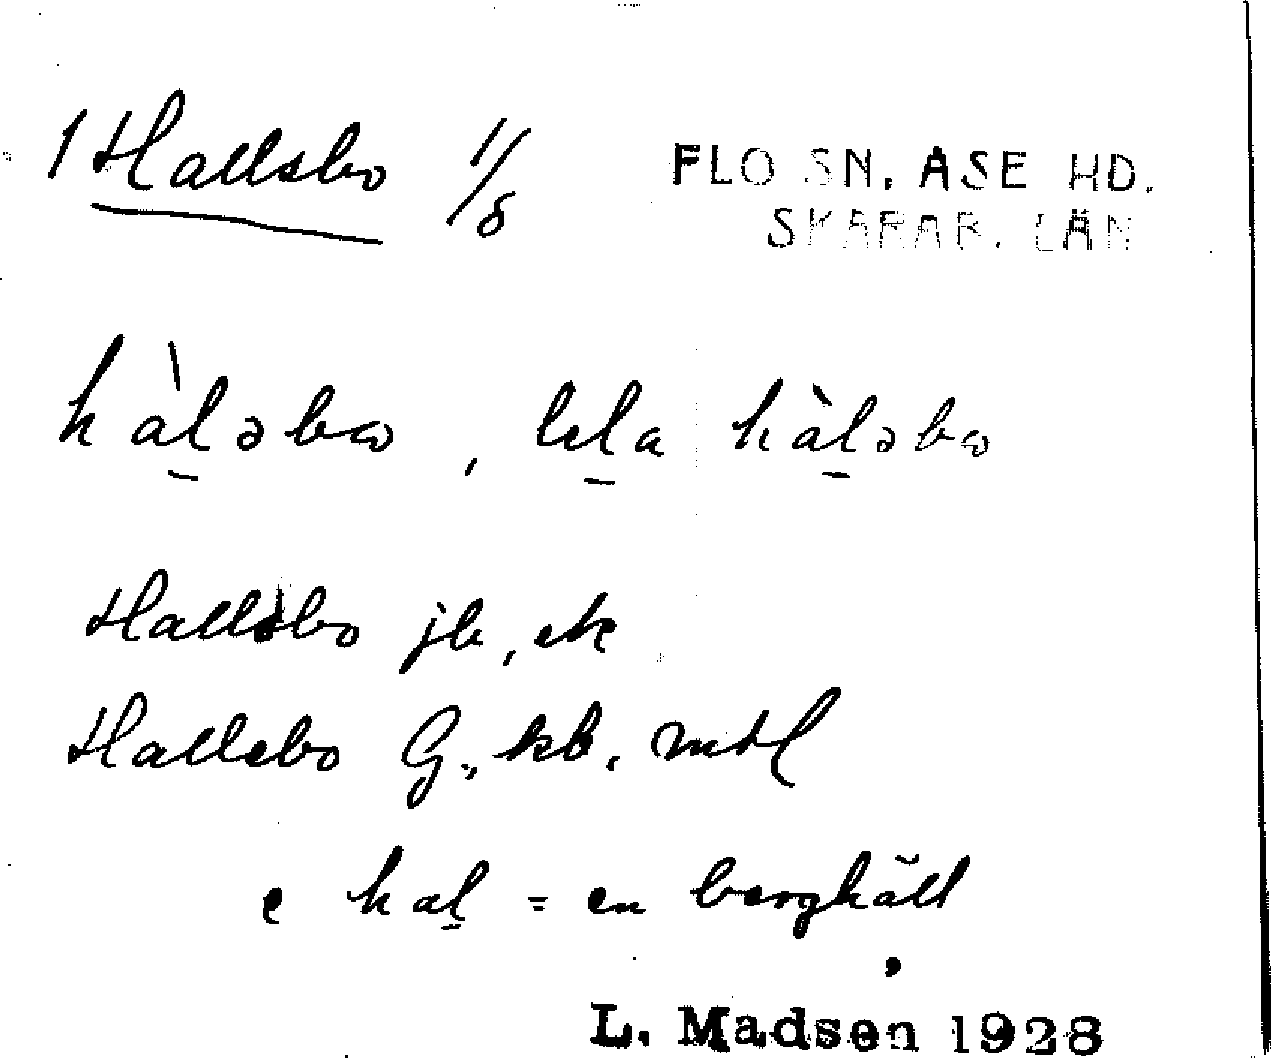 1 Hallsbo 1/8
FLO SN. ASE HD.
SKARAB. LÄN
hàḻəbω, lɩḻa hàḻəbω
Hallsbo jb, ek
Hallebo G., kb, mtl
e haḻ = en berghäll
L. Madsen 1928